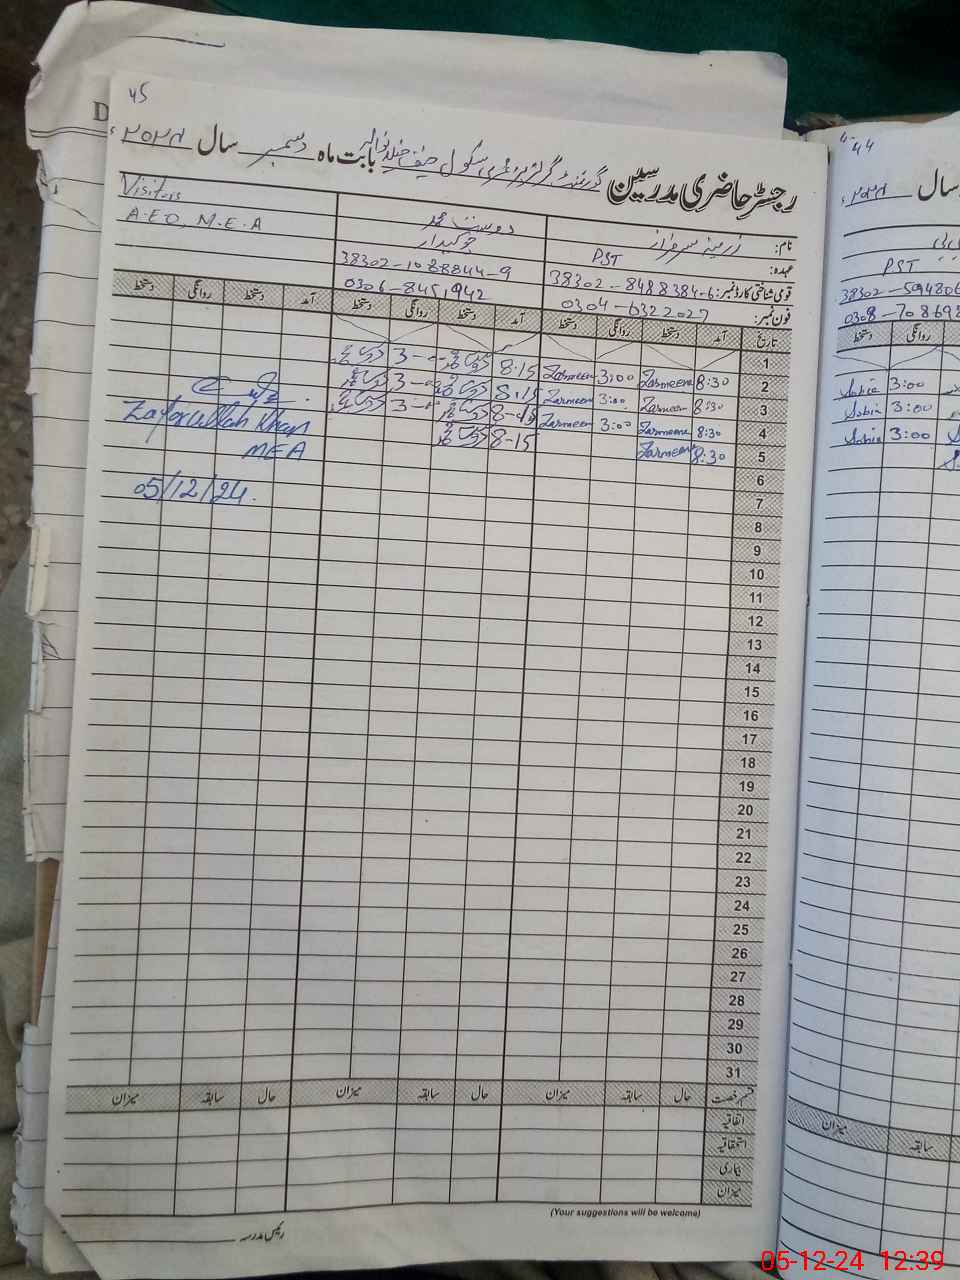 45
رجسٹر حاضری مدرسین گورنمنٹ گرلز پرائمری سکول بابت ماہ دسمبر سال ۲۰۲۴ء
نام: زرمینہ سرفراز دوست محمد Visitors
عہدہ: PST چوکیدار A.E.O, M.E.A
قومی شناختی کارڈ نمبر: 38302-8488384-6 38302-1088844-9
فون نمبر: 0304-6322027 0306-8451942
تاریخ آمد دستخط روانگی دستخط آمد دستخط روانگی دستخط آمد دستخط روانگی دستخط
1
2 8:30 Zarmeena 3:00 Zarmeena 8.15 3-00
3 8:30 Zarmeena 3:00 Zarmeena 8.15 3-00
4 8:30 Zarmeena 3:00 Zarmeena 8-15 3-00
5 8:30 Zarmeena 8-15
Zafarullah Khan
MEA
05/12/24.
6
7
8
9
10
11
12
13
14
15
16
17
18
19
20
21
22
23
24
25
26
27
28
29
30
31
قسم رخصت حال سابقہ میزان حال سابقہ میزان حال سابقہ میزان
اتفاقیہ
استحقاقیہ
بیماری
میزان
(Your suggestions will be welcome)
رئیس مدرسہ
44
سال ۲۰۲۴ء
PST
38302-594806
0308-708698
روانگی دستخط
3:00 Sobia
3:00 Sobia
3:00 Sobia
سابقہ میزان
05-12-24 12:39